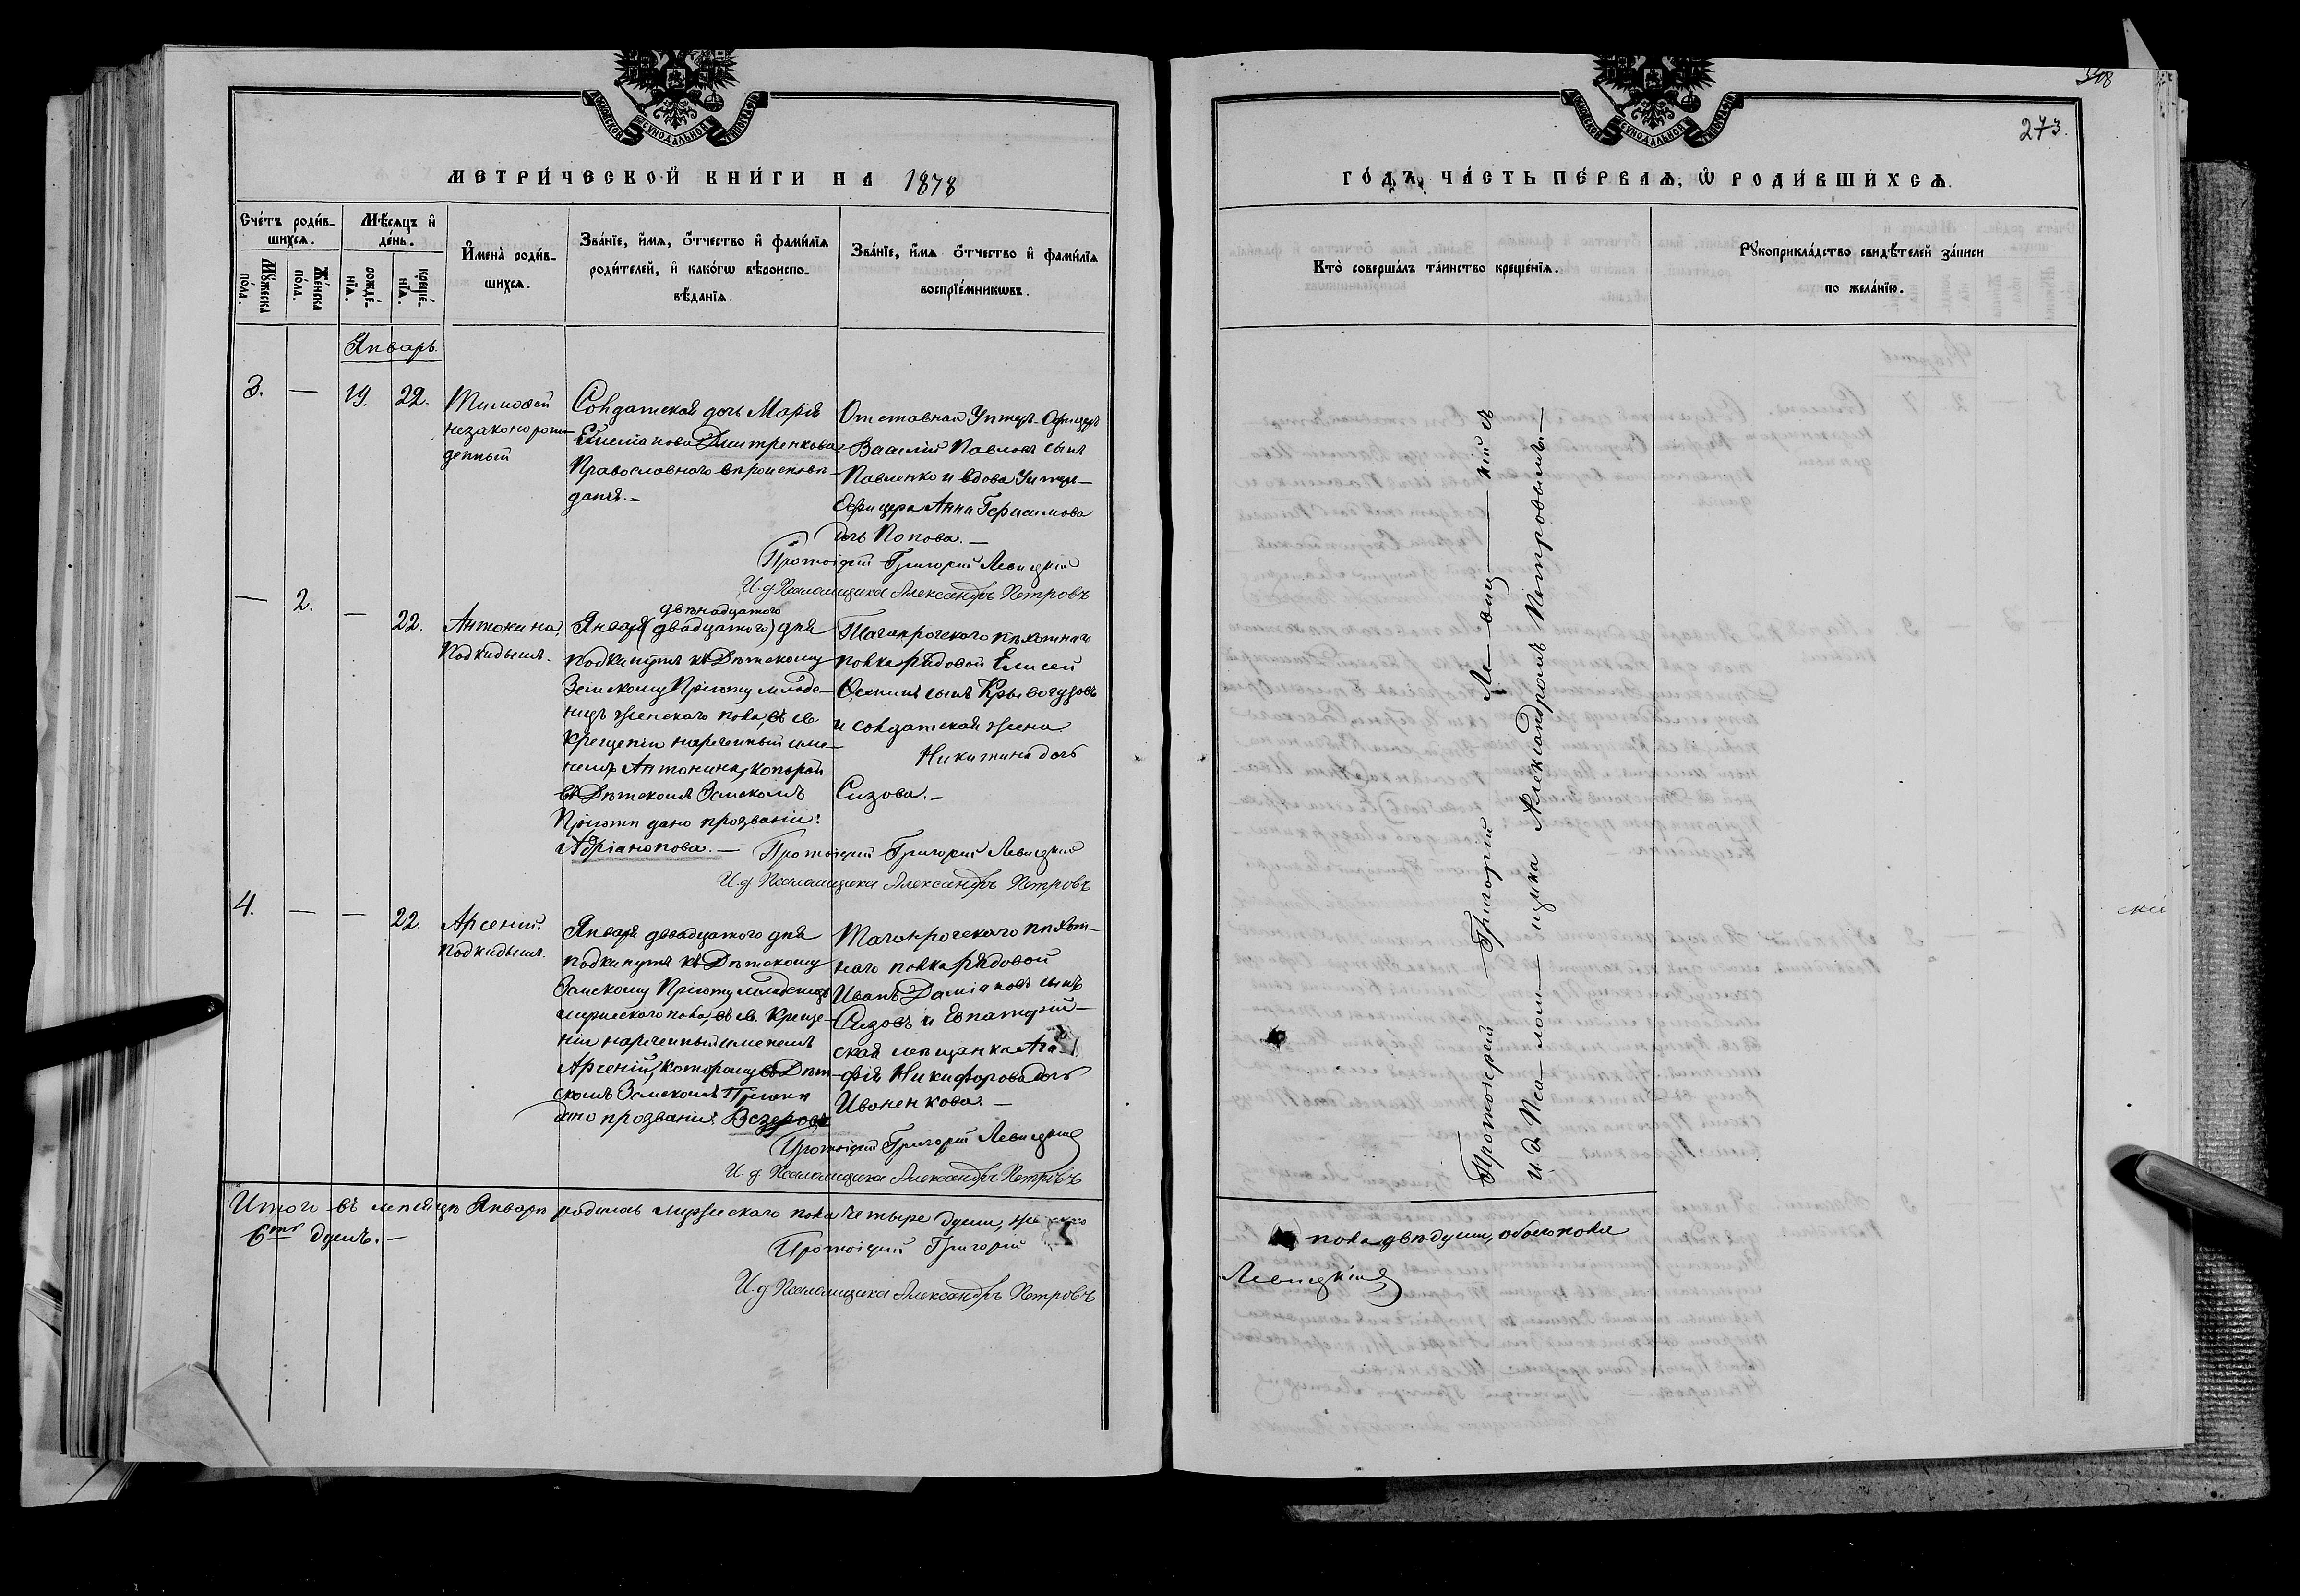 МОСКОВСКОЙ СУНОДАЛЬНОЙ ТИПОГРАФІИ
МЕТРИ́ЧЕСКОЙ КНИ́ГИ НА 1878
Сче́тъ роди́в-
шихсѧ.
Мꙋ́жеска
по́ла.
Же́нска
по́ла.
Мѣ́сѧцъ и҆
день.
рожде́-
нїѧ.
креще́-
нїѧ.
И҆мена̀ роди́в-
шихсѧ.
Зва́нїе, и҆́мѧ, ѻ҆́тчество и҆ фами́лїѧ
роди́телей, и҆ како́гѡ вѣроиспо-
вѣ́данїѧ.
Зва́нїе, и҆́мѧ ѻ҆́тчество и҆ фами́лїѧ
воспрїе́мникѡвъ.
Январь.
3. — 19. 22.
Тимоѳей
незаконорож-
денный
Солдатская дочь Марія
Дмитренкова
Православнаго вѣроисповѣ-
данія.—
Отставной Унтеръ-Офицеръ
Василій Павловъ сынъ
Павленко и вдова Унтеръ-
Офицера Анна Герасимова
дочь Попова.—
Протоіерей Григорій Левицкій
И. д. Псаломщика Александръ Петровъ
— 2. — 22.
Антонина,
Подкидышъ.
двѣнадцатого
Января (двадцатого) дня
подкинутъ къ Дѣтскому
Земскому Пріюту младе-
нецъ женскаго пола, въ св.
крещеніи нареченный име-
немъ Антонина, которой
въ Дѣтскомъ Земскомъ
Пріютѣ дано прозваніе:
Адріанопова.—
Таганрогскаго пѣхотнаго
полка рядовой Елисей
Осиповъ сынъ Кривогузовъ
и солдатская жена
Никитина дочь
Сизова.—
Протоіерей Григорій Левицкій
И. д. Псаломщика Александръ Петровъ
4. — — 22.
Арсеній.
Подкидышъ.
Января двадцатого дня
подкинутъ къ Дѣтскому
Земскому Пріюту младенецъ
мужескаго пола, въ св. Креще-
ніи нареченный именемъ
Арсеній, которому въ Дѣт-
скомъ Земскомъ Пріютѣ
дано прозваніе:
Таганрогскаго пѣхот-
наго полка рядовой
Иванъ Даміановъ сынъ
Сизовъ и Евпаторій-
ская мѣщанка Ага-
фія Никифорова дочь
Иваненкова.—
Протоіерей Григорій Левицкій
И. д. Псаломщика Александръ Петровъ
Итого въ мѣсяцѣ Январѣ родилось мужескаго пола четыре души,
6ть душъ.—
Протоіерей Григорій
И. д. Псаломщика Александръ Петровъ
273.
МОСКОВСКОЙ СУНОДАЛЬНОЙ ТИПОГРАФІИ
ГО́ДЪ, ЧА́СТЬ ПЕ́РВАѦ, Ѡ҆ РОДИ́ВШИХСѦ.
Кто̀ соверша́лъ та́инство креще́нїѧ.
Рꙋкоприкла́дство свидѣ́телей за́писи
по жела́нїю.
Протоіерей — Григорій — Ле — виц — кій съ
и. д. Пса — лом — щика Александромъ Петровымъ.—
пола двѣ души, обоего пола
Левицкій